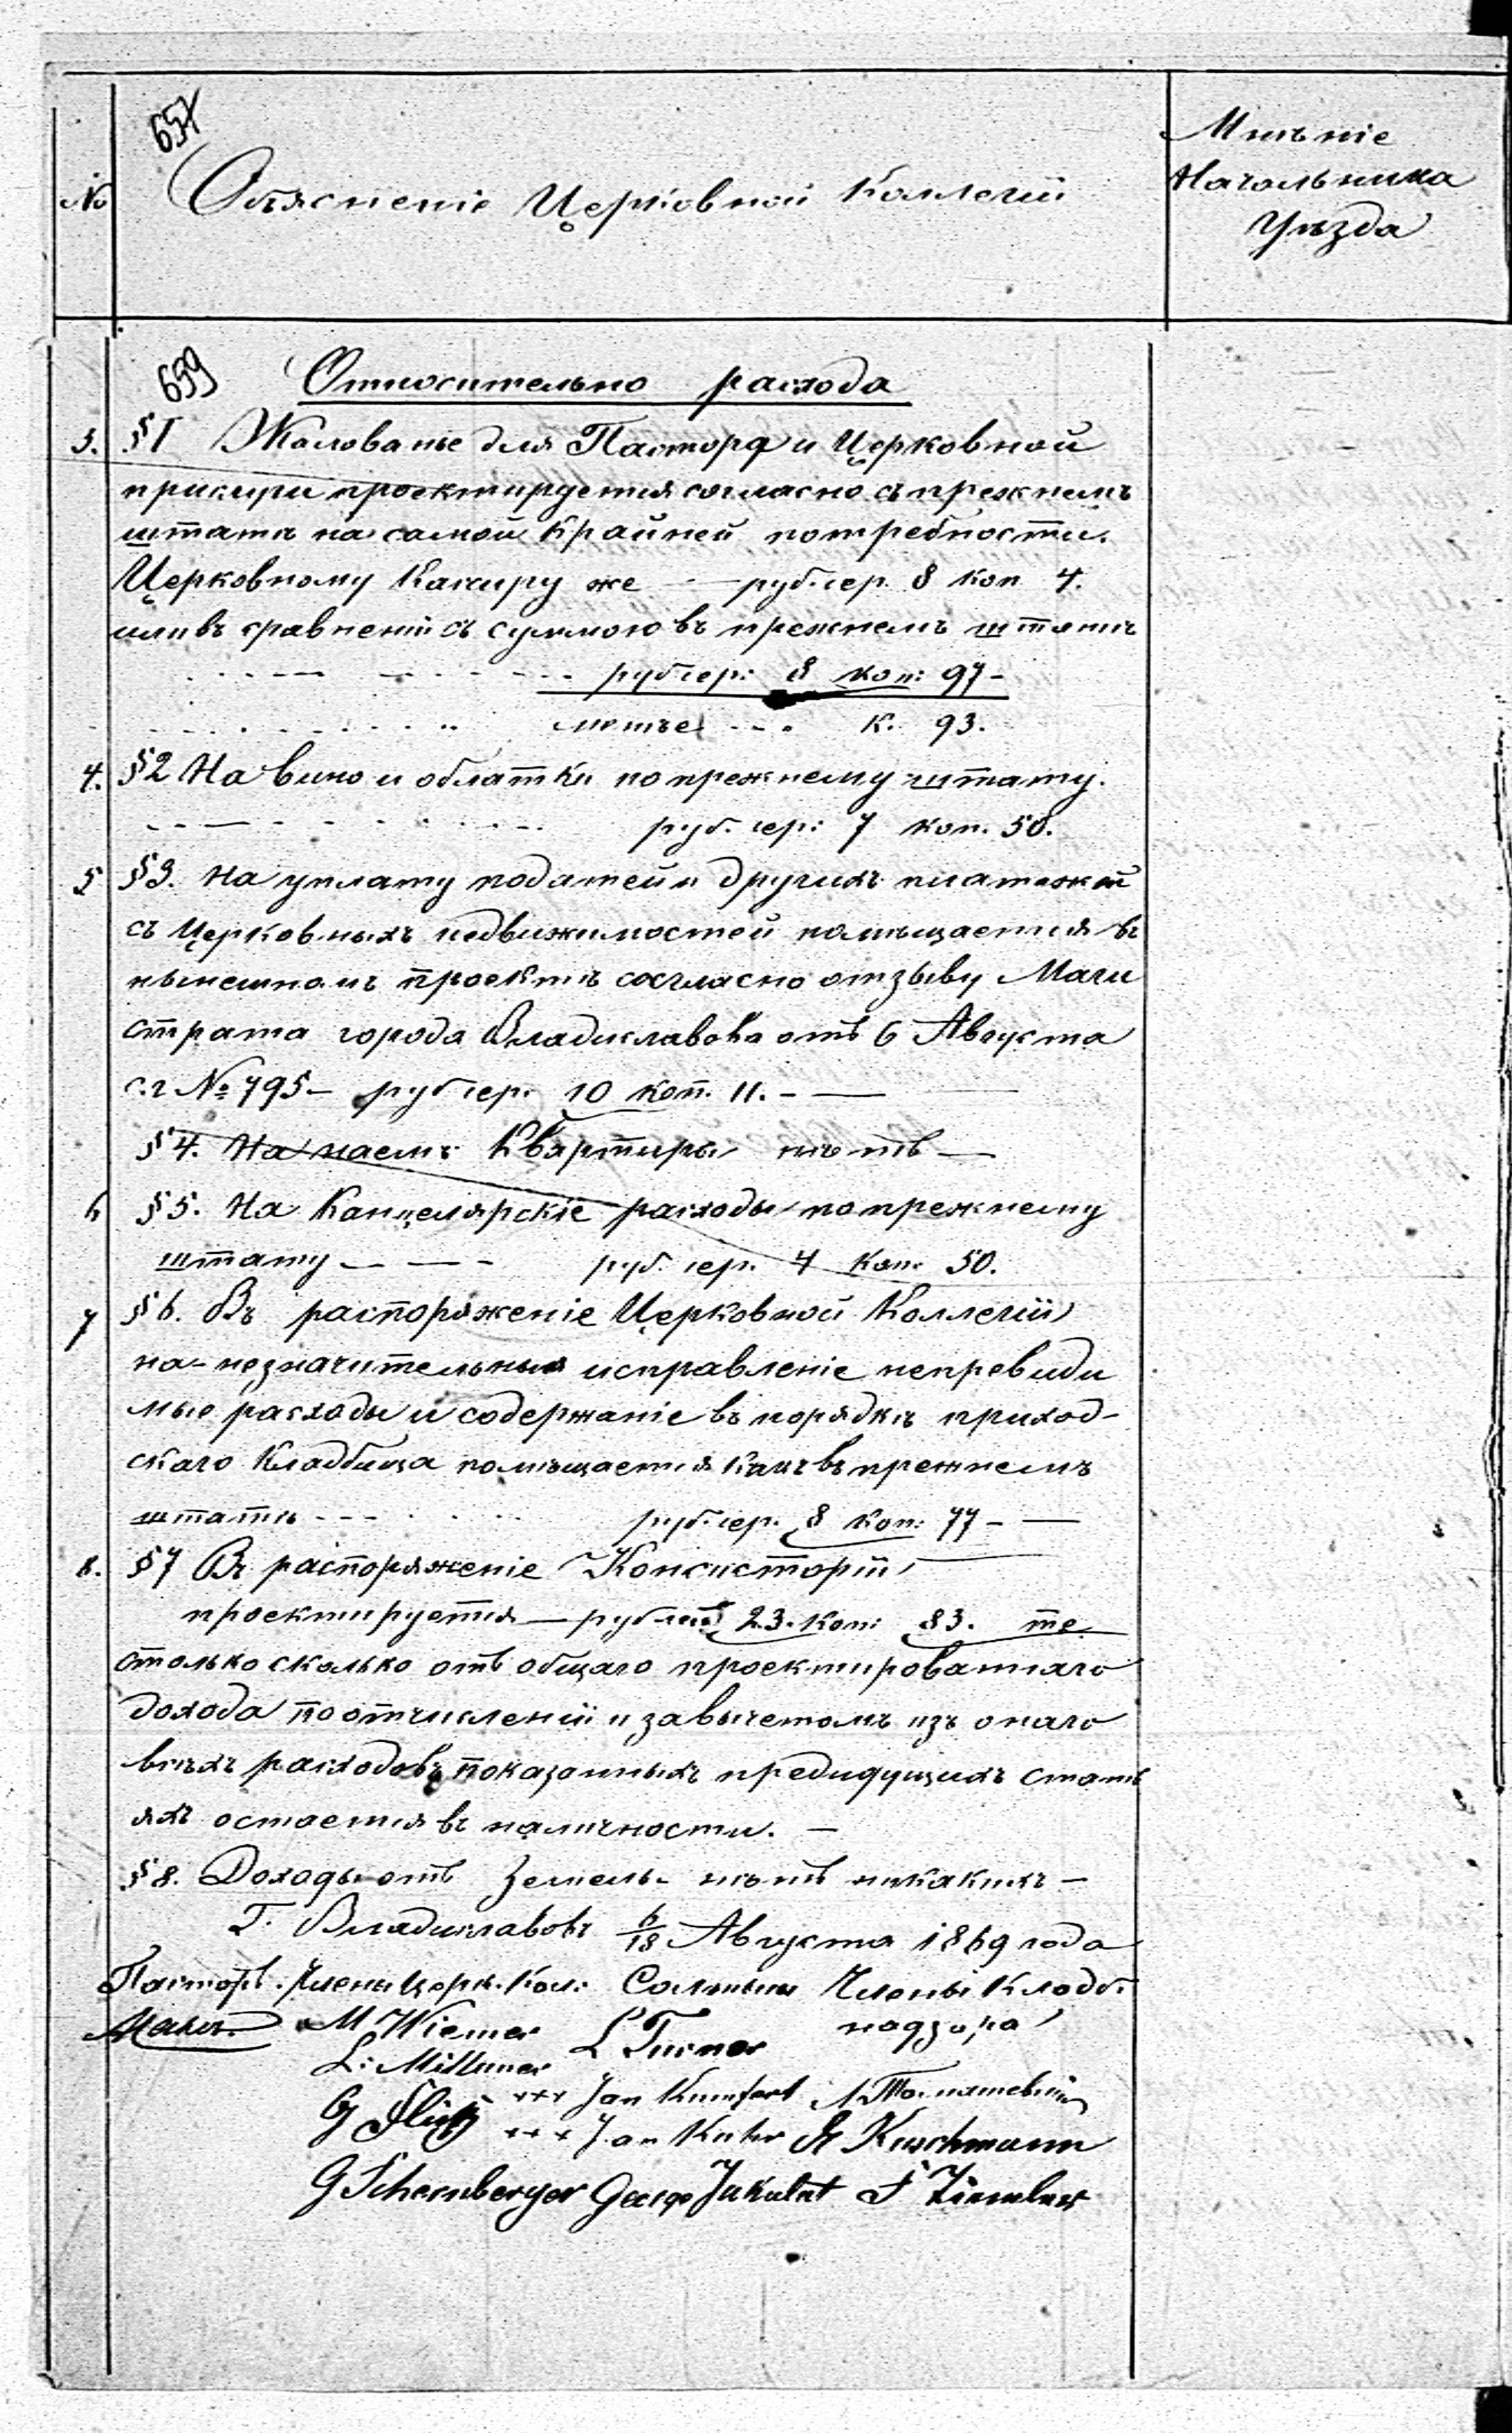 657
№
Объясненіе Церковной Коллегіи
Мнѣніе
Начальника
Уѣзда
659
Относительно расхода
3. §1 Жалованье для Пастора и Церковной
прислуги проектируется согласно съ прежнемъ
штатѣ на самой крайней потребности.
Церковному Кассиру же — рубсер. 8 коп 4.
или въ сравненіи съ суммою въ прежнемъ штатѣ
рубсер: 8 коп: 97 -
менѣе - - . к. 93.
4. §2 На вино и облатки по прежнему штату.
руб. сер: 7 коп. 50.
5 §3. На уплату податей и другихъ платежей
съ Церковныхъ недвижимостей помѣщается въ
нынешномъ проектѣ согласно отзыву Маги
страта города Владиславова отъ 6 Августа
с.г № 795 — рубсер. 10 коп. 11. - —
§4. На наемъ Квартиры нѣтъ —
6 §5. На Канцелярскіе расходы по прежнему
штату — — - руб. сер. 4 Коп. 50.
7 §6. Въ распоряженіе Церковной Коллегіи
на незначительныя исправленіе непревиди
мые расходы и содержаніе въ порядкѣ приход-
скаго Кладбища помѣщается какъ въ прежнемъ
штатѣ - - - рубсер. 8 коп: 77 - —
8. §7 Въ распоряженіе Консисторіи
проектируется — рублей 23. коп: 83. те
столько сколько отъ общаго проектированнаго
дохода по отчисленіи и завычетомъ изъ онаго
всѣхъ расходовъ показанныхъ предидущихъ стать
яхъ остается въ наличности. —
§8. Доходы отъ Земель нѣтъ никакихъ —
Г. Владиславовъ 6/18 Августа 1869 года
Пасторъ. Члены Церк. Кол: Солтысы Члены Кладб.
надзора
M Wiemer L Turner
L: Milluner
G +++ Jan Kumfert
+++ Jan Kuhr Kuschmann
G Schernberger George Jakulat F Ziemler